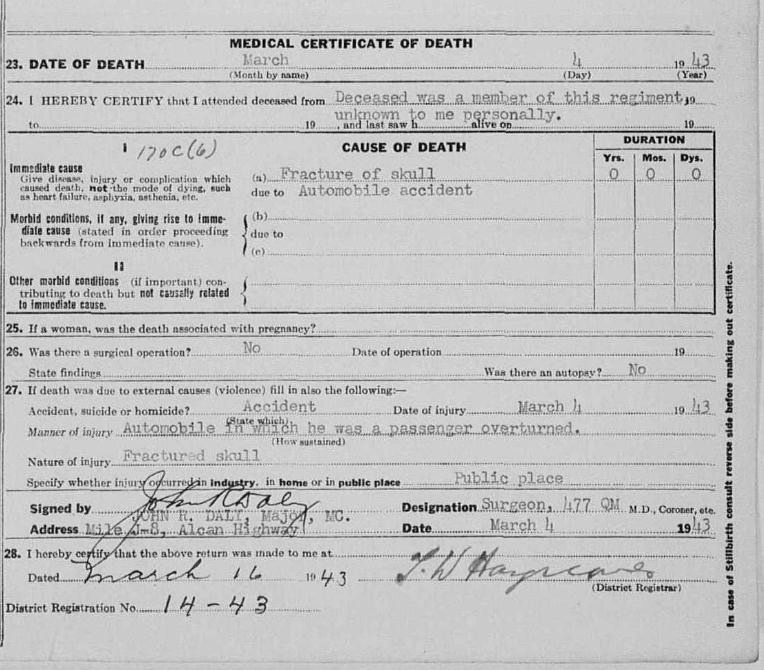 MEDICAL CERTIFICATE OF DEATH
23. DATE OF DEATH March 4 1943
(Month by name) (Day) (Year)
24. I HEREBY CERTIFY that I attended deceased from Deceased was a member of this regiment, 19
unknown to me personally.
to 19 , and last saw h alive on 19
I 170C(6) CAUSE OF DEATH DURATION
Yrs. Mos. Dys.
Immediate cause
Give disease, injury or complication which
caused death, not the mode of dying, such
as heart failure, asphyxia, asthenia, etc.
(a) Fracture of skull 0 0 0
due to Automobile accident
Morbid conditions, if any, giving rise to imme-
diate cause (stated in order proceeding
backwards from immediate cause).
(b)
due to
(c)
II
Other morbid conditions (if important) con-
tributing to death but not causally related
to immediate cause.
25. If a woman, was the death associated with pregnancy?
26. Was there a surgical operation? No Date of operation 19
State findings Was there an autopsy? No
27. If death was due to external causes (violence) fill in also the following:—
Accident, suicide or homicide? Accident Date of injury March 4 1943
(State which)
Manner of injury Automobile in which he was a passenger overturned.
(How sustained)
Nature of injury Fractured skull
Specify whether injury occurred in industry, in home or in public place Public place
John R Daly
Signed by JOHN R. DALY, Major, MC. Designation Surgeon, 477 QM M.D., Coroner, etc.
Address Mile J-8, Alcan Highway Date March 4 1943
28. I hereby certify that the above return was made to me at
Dated March 16 1943 T. W Hargreaves
(District Registrar)
District Registration No. 14-43
In case of Stillbirth consult reverse side before making out certificate.